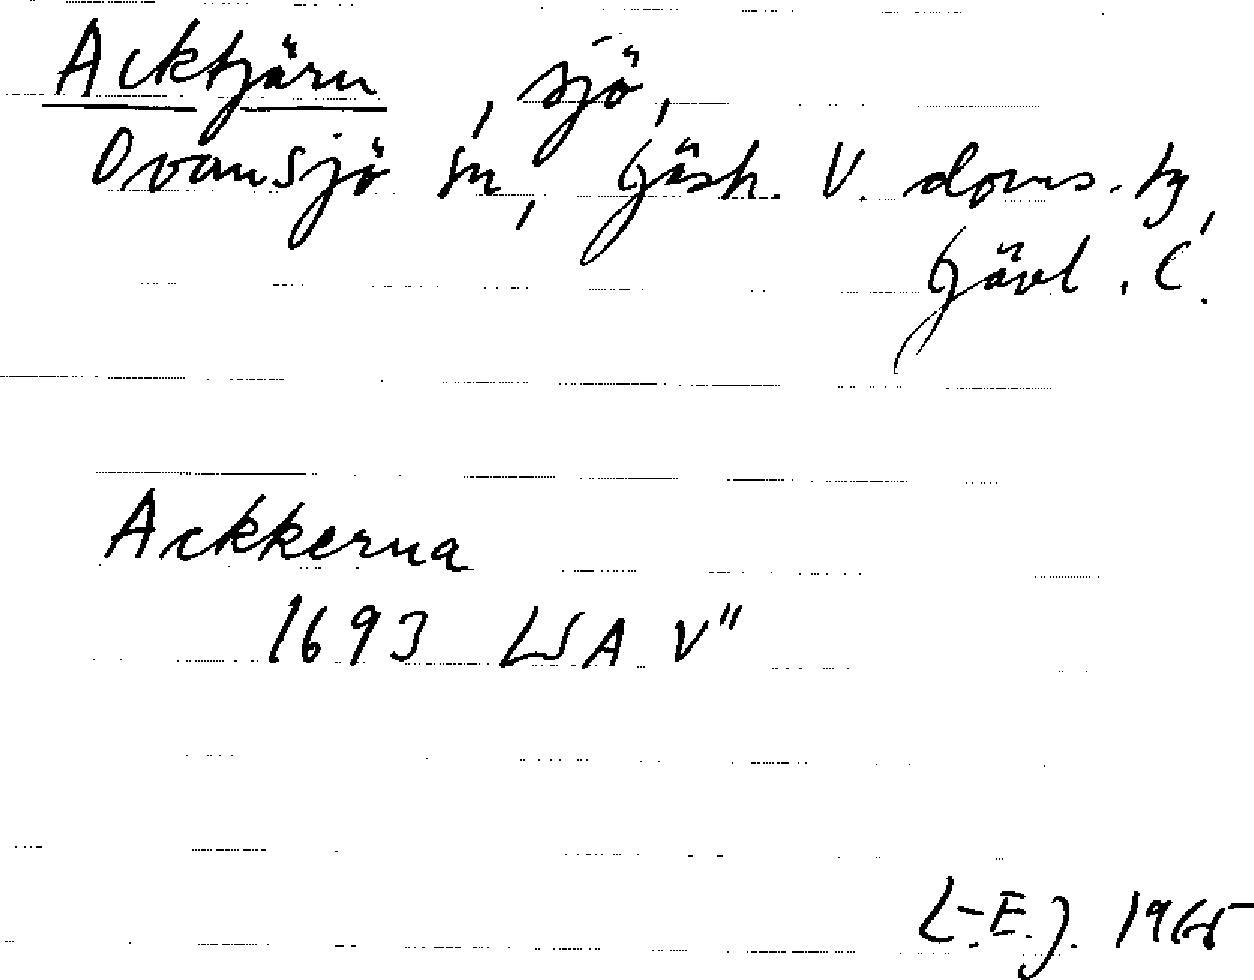 Acktjärn, sjö,
Ovansjö sn, Gästr. V. doms.-tg,
Gävl. C.
Ackkerna
1693 LSA V"
L-E.J. 1965